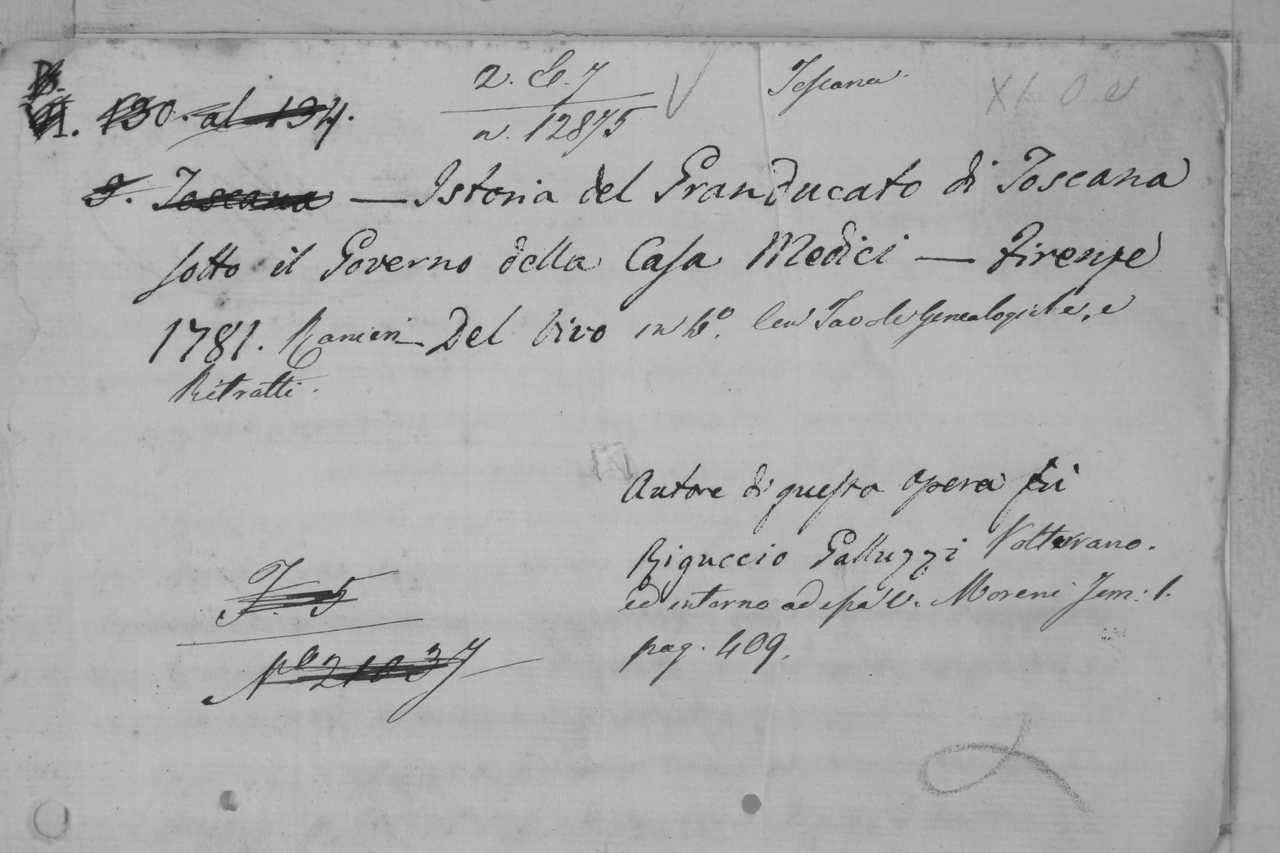 2. C. 7
n. 12875
Toscana
130. al 134.
T. Toscana — Istoria del Granducato di Toscana
sotto il Governo della Casa Medici — Firenze
1781. Ranieri Del Vivo in 4º. Con Tavole Genealogiche, e
Ritratti.
Autore di questa opera fù
Riguccio Galluzzi Volterrano.
ed intorno ad essa V. Moreni Tom: 1.
pag. 409.
T. 5
Nº 21037